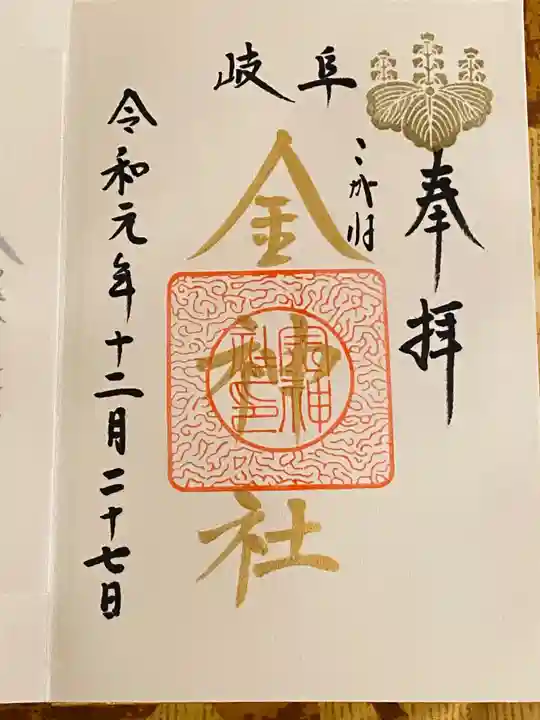 奉拝
岐阜
こがね
金神社
令和元年十二月二十七日